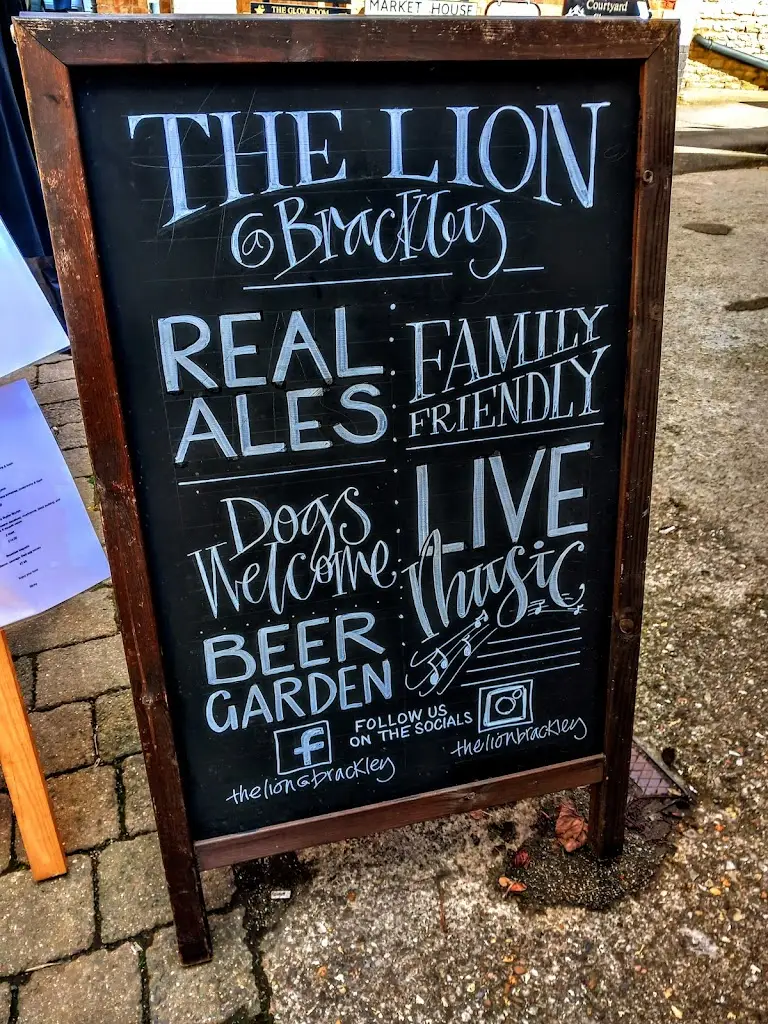 THE GLOW ROOM
MARKET HOUSE
Courtyard
THE LION
@Brackley
REAL
ALES
FAMILY
FRIENDLY
Dogs
Welcome
LIVE
Music
BEER
GARDEN
FOLLOW US
ON THE SOCIALS
f
thelion@brackley
thelionbrackley